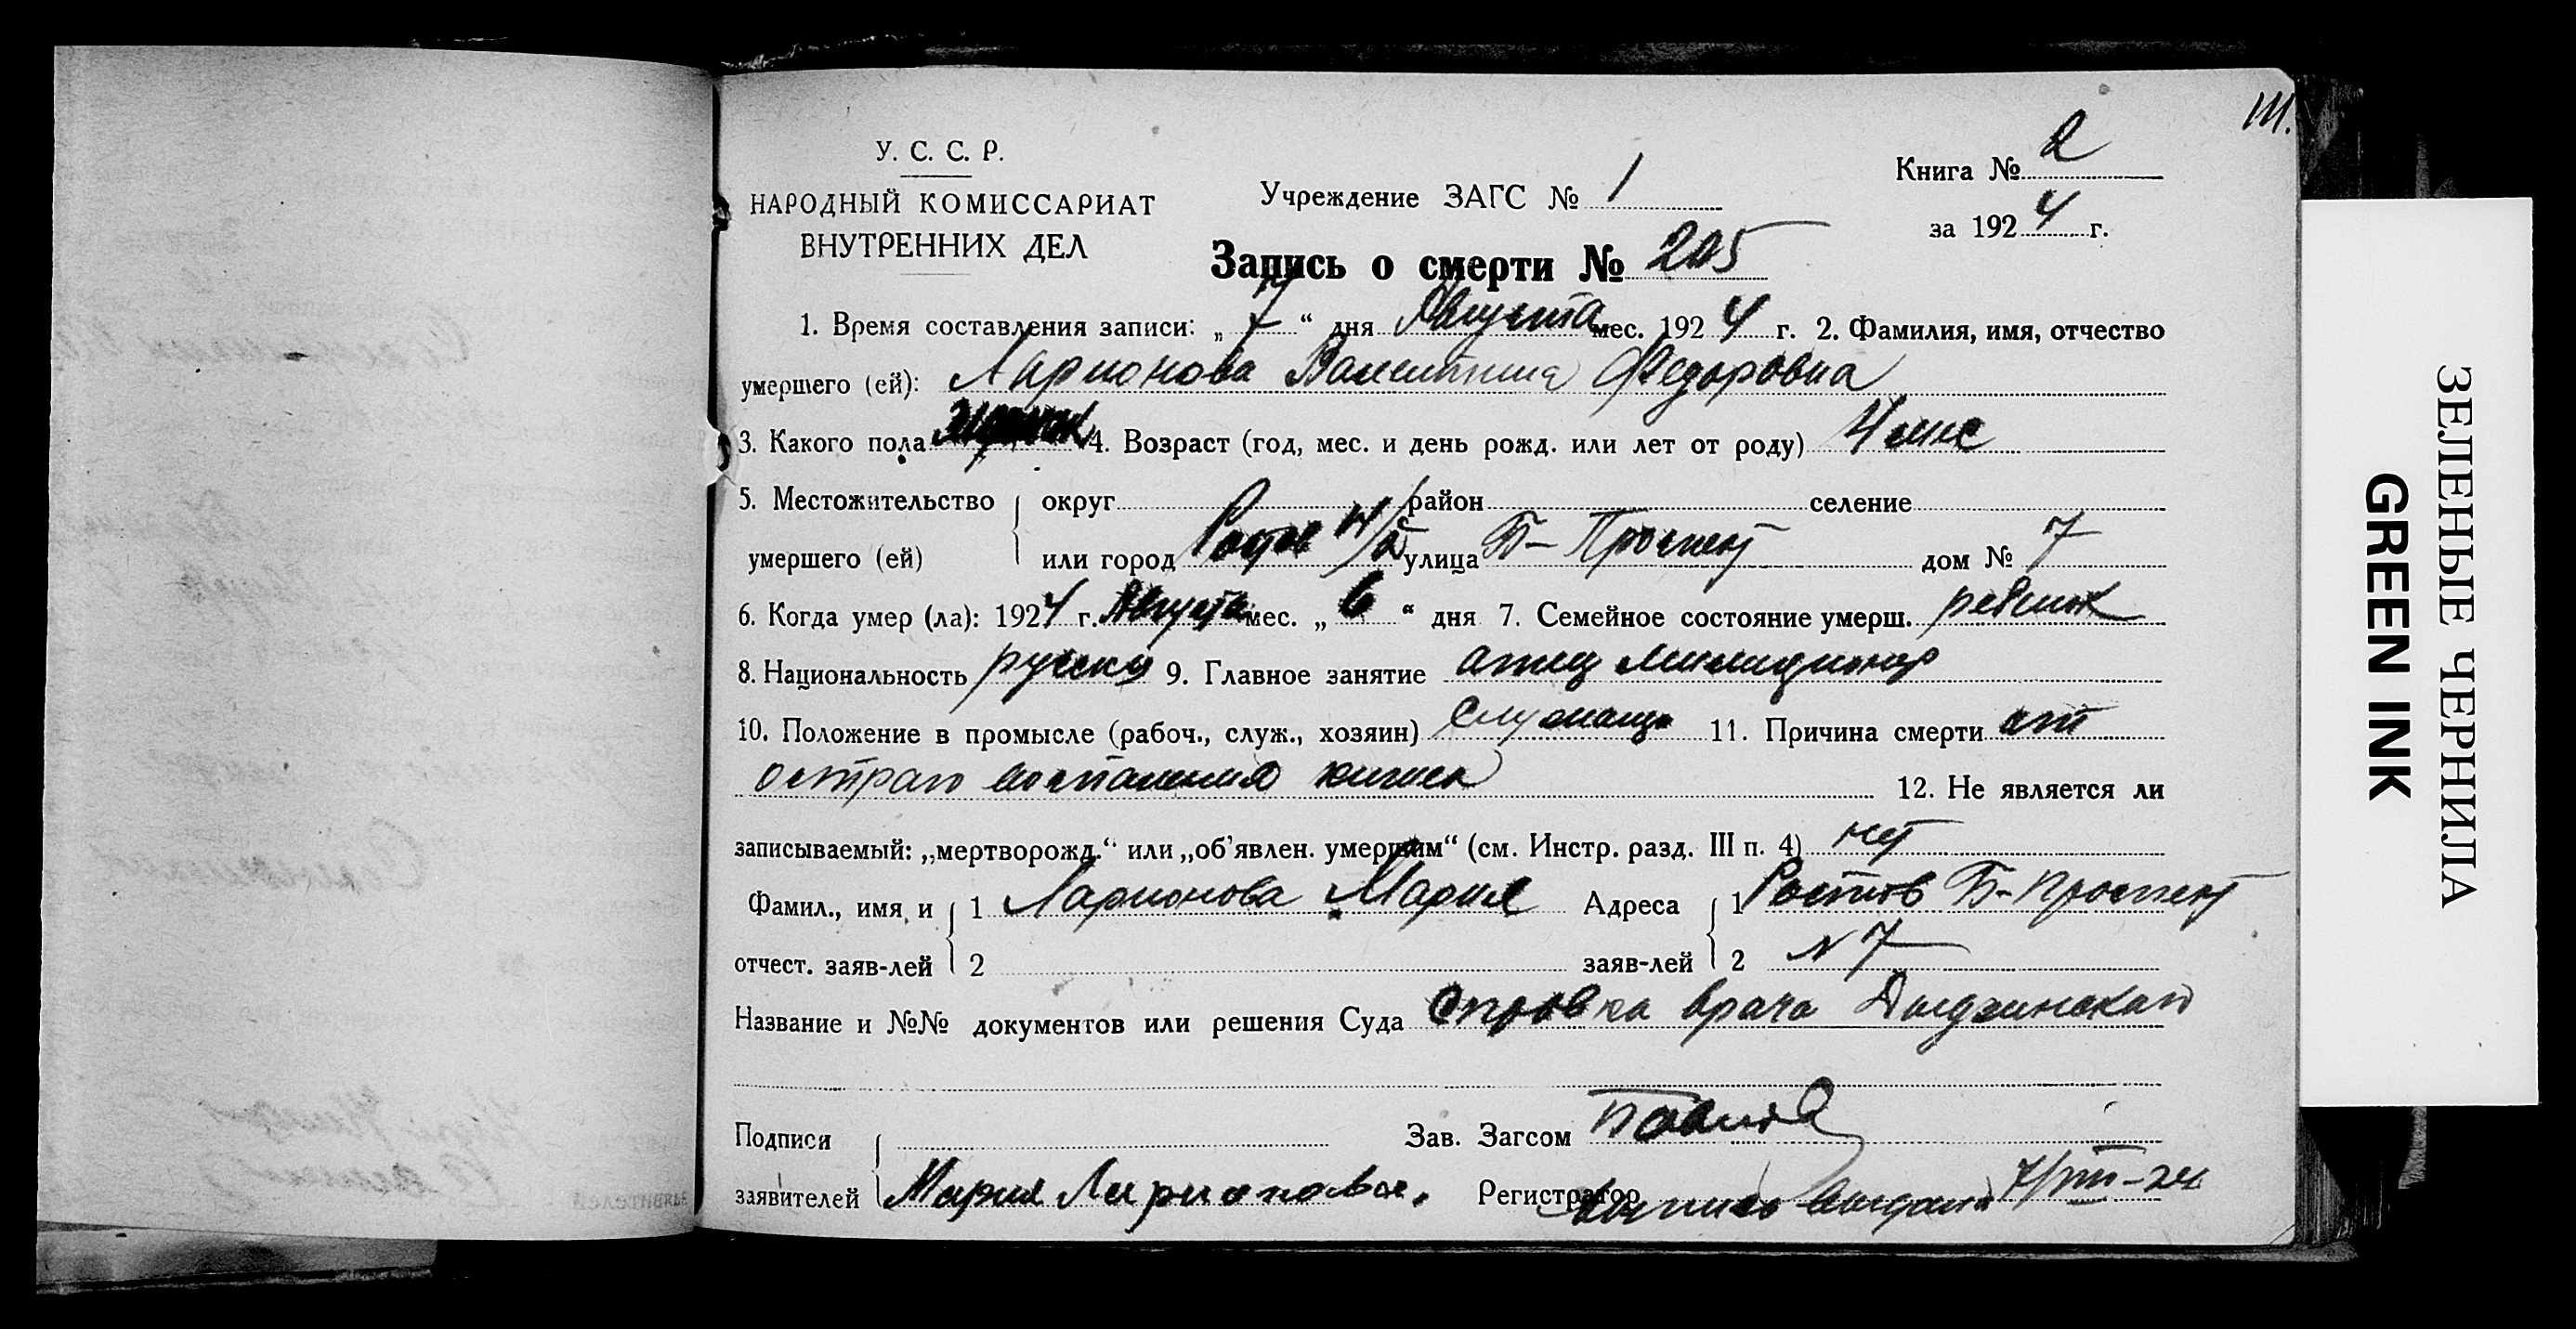 111.
У. С. С. Р.
НАРОДНЫЙ КОМИССАРИАТ
ВНУТРЕННИХ ДЕЛ
Учреждение ЗАГС № 1
Книга № 2
за 1924 г.
Запись о смерти № 205
1. Время составления записи: „7“ дня Августа мес. 1924 г. 2. Фамилия, имя, отчество
умершего (ей): Ларионова Валентина Федоровна
3. Какого пола 4. Возраст (год, мес. и день рожд. или лет от роду) 4 мес
5. Местожительство округ район селение
умершего (ей) или город Ростов Н/Д улица Б-Проспект дом № 7
6. Когда умер (ла): 1924 г. Августа мес. „6“ дня 7. Семейное состояние умерш. ребенок
8. Национальность русск 9. Главное занятие отец милиционер
10. Положение в промысле (рабоч., служ., хозяин) служащ 11. Причина смерти от
остраго воспаления кишек 12. Не является ли
записываемый: „мертворожд.“ или „об'явлен. умершим“ (см. Инстр. разд. III п. 4) нет
Фамил., имя, и 1 Ларионова Мария Адреса 1 Ростов Б-проспект
отчест. заяв-лей 2 заяв-лей 2 N 7
Название и №№ документов или решения Суда справка врача
Подписи Зав. Загсом
заявителей Мария Ларионова. Регистратор 7/VIII-24
ЗЕЛЕНЫЕ ЧЕРНИЛА
GREEN INK